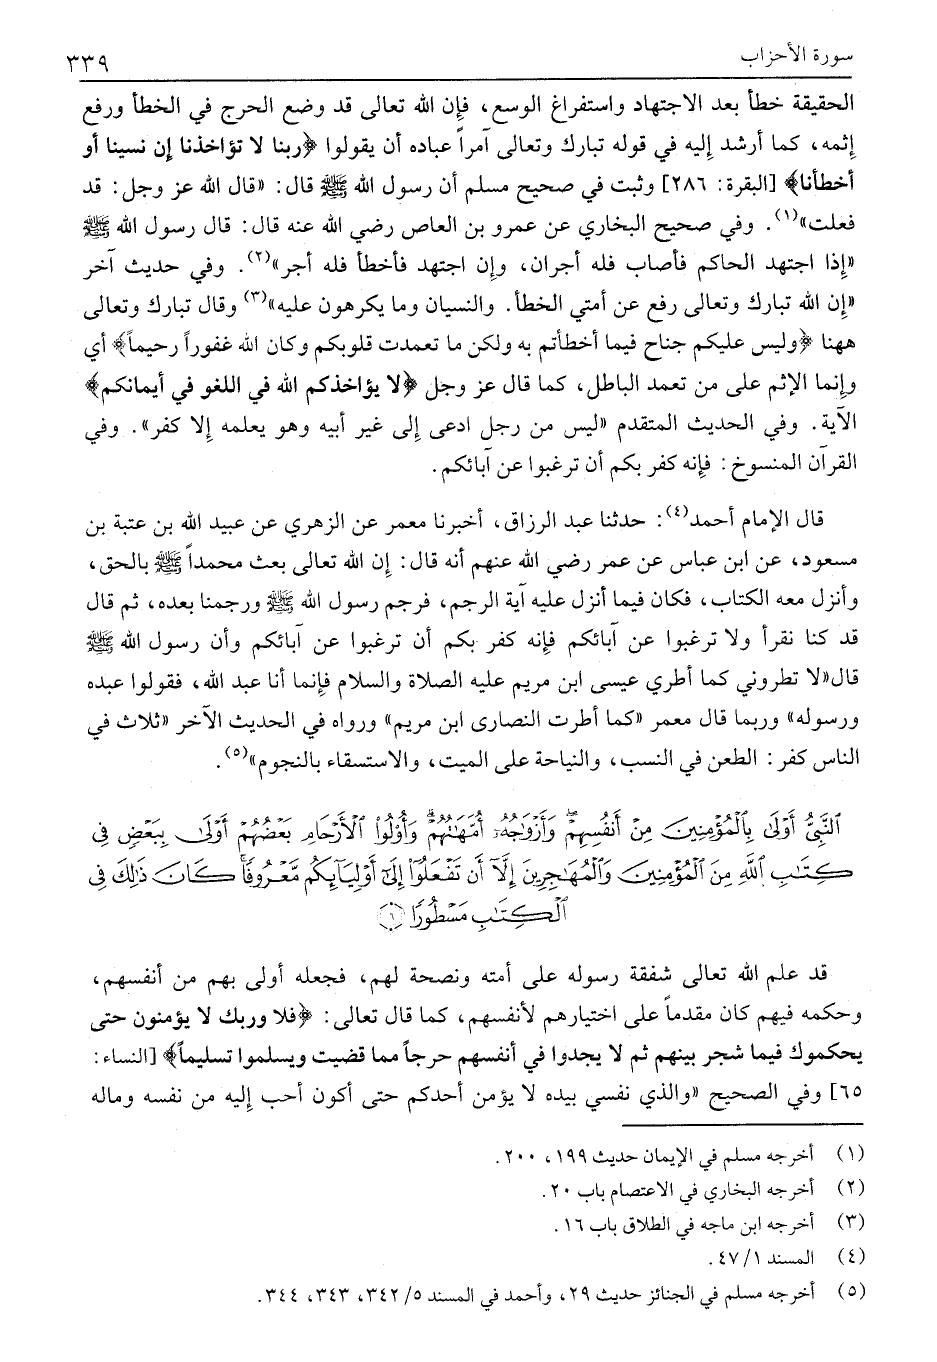 سورة الأحزاب ٣٣٩
الحقيقة خطأ بعد الاجتهاد واستفراغ الوسع، فإن الله تعالى قد وضع الحرج في الخطأ ورفع
إثمه، كما أرشد إليه في قوله تبارك وتعالى آمراً عباده أن يقولوا ﴿ربنا لا تؤاخذنا إن نسينا أو
أخطأنا﴾ [البقرة: ٢٨٦] وثبت في صحيح مسلم أن رسول الله ﷺ قال: «قال الله عز وجل: قد
فعلت»(١). وفي صحيح البخاري عن عمرو بن العاص رضي الله عنه قال: قال رسول الله ﷺ
«إذا اجتهد الحاكم فأصاب فله أجران، وإن اجتهد فأخطأ فله أجر»(٢). وفي حديث آخر
«إن الله تبارك وتعالى رفع عن أمتي الخطأ. والنسيان وما يكرهون عليه»(٣) وقال تبارك وتعالى
ههنا ﴿وليس عليكم جناح فيما أخطأتم به ولكن ما تعمدت قلوبكم وكان الله غفوراً رحيماً﴾ أي
وإنما الإثم على من تعمد الباطل، كما قال عز وجل ﴿لا يؤاخذكم الله في اللغو في أيمانكم﴾
الآية. وفي الحديث المتقدم «ليس من رجل ادعى إلى غير أبيه وهو يعلمه إلا كفر». وفي
القرآن المنسوخ: فإنه كفر بكم أن ترغبوا عن آبائكم.
قال الإمام أحمد(٤): حدثنا عبد الرزاق، أخبرنا معمر عن الزهري عن عبيد الله بن عتبة بن
مسعود، عن ابن عباس عن عمر رضي الله عنهم أنه قال: إن الله تعالى بعث محمداً ﷺ بالحق،
وأنزل معه الكتاب، فكان فيما أنزل عليه آية الرجم، فرجم رسول الله ﷺ ورجمنا بعده، ثم قال
قد كنا نقرأ ولا ترغبوا عن آبائكم فإنه كفر بكم أن ترغبوا عن آبائكم وأن رسول الله ﷺ
قال«لا تطروني كما أطري عيسى ابن مريم عليه الصلاة والسلام فإنما أنا عبد الله، فقولوا عبده
ورسوله» وربما قال معمر «كما أطرت النصارى ابن مريم» ورواه في الحديث الآخر «ثلاث في
الناس كفر: الطعن في النسب، والنياحة على الميت، والاستسقاء بالنجوم»(٥).
ٱلنَّبِيُّ أَوْلَىٰ بِٱلْمُؤْمِنِينَ مِنْ أَنفُسِهِمْ ۖ وَأَزْوَٰجُهُۥٓ أُمَّهَٰتُهُمْ ۗ وَأُو۟لُوا۟ ٱلْأَرْحَامِ بَعْضُهُمْ أَوْلَىٰ بِبَعْضٍ فِى
كِتَٰبِ ٱللَّهِ مِنَ ٱلْمُؤْمِنِينَ وَٱلْمُهَٰجِرِينَ إِلَّآ أَن تَفْعَلُوٓا۟ إِلَىٰٓ أَوْلِيَآئِكُم مَّعْرُوفًا ۚ كَانَ ذَٰلِكَ فِى
ٱلْكِتَٰبِ مَسْطُورًا ۝٦
قد علم الله تعالى شفقة رسوله على أمته ونصحة لهم، فجعله أولى بهم من أنفسهم،
وحكمه فيهم كان مقدماً على اختيارهم لأنفسهم، كما قال تعالى: ﴿فلا وربك لا يؤمنون حتى
يحكموك فيما شجر بينهم ثم لا يجدوا في أنفسهم حرجاً مما قضيت ويسلموا تسليماً﴾ [النساء:
٦٥] وفي الصحيح «والذي نفسي بيده لا يؤمن أحدكم حتى أكون أحب إليه من نفسه وماله
(١) أخرجه مسلم في الإيمان حديث ١٩٩، ٢٠٠.
(٢) أخرجه البخاري في الاعتصام باب ٢٠.
(٣) أخرجه ابن ماجه في الطلاق باب ١٦.
(٤) المسند ٤٧/١.
(٥) أخرجه مسلم في الجنائز حديث ٢٩، وأحمد في المسند ٥/ ٣٤٢، ٣٤٣، ٣٤٤.